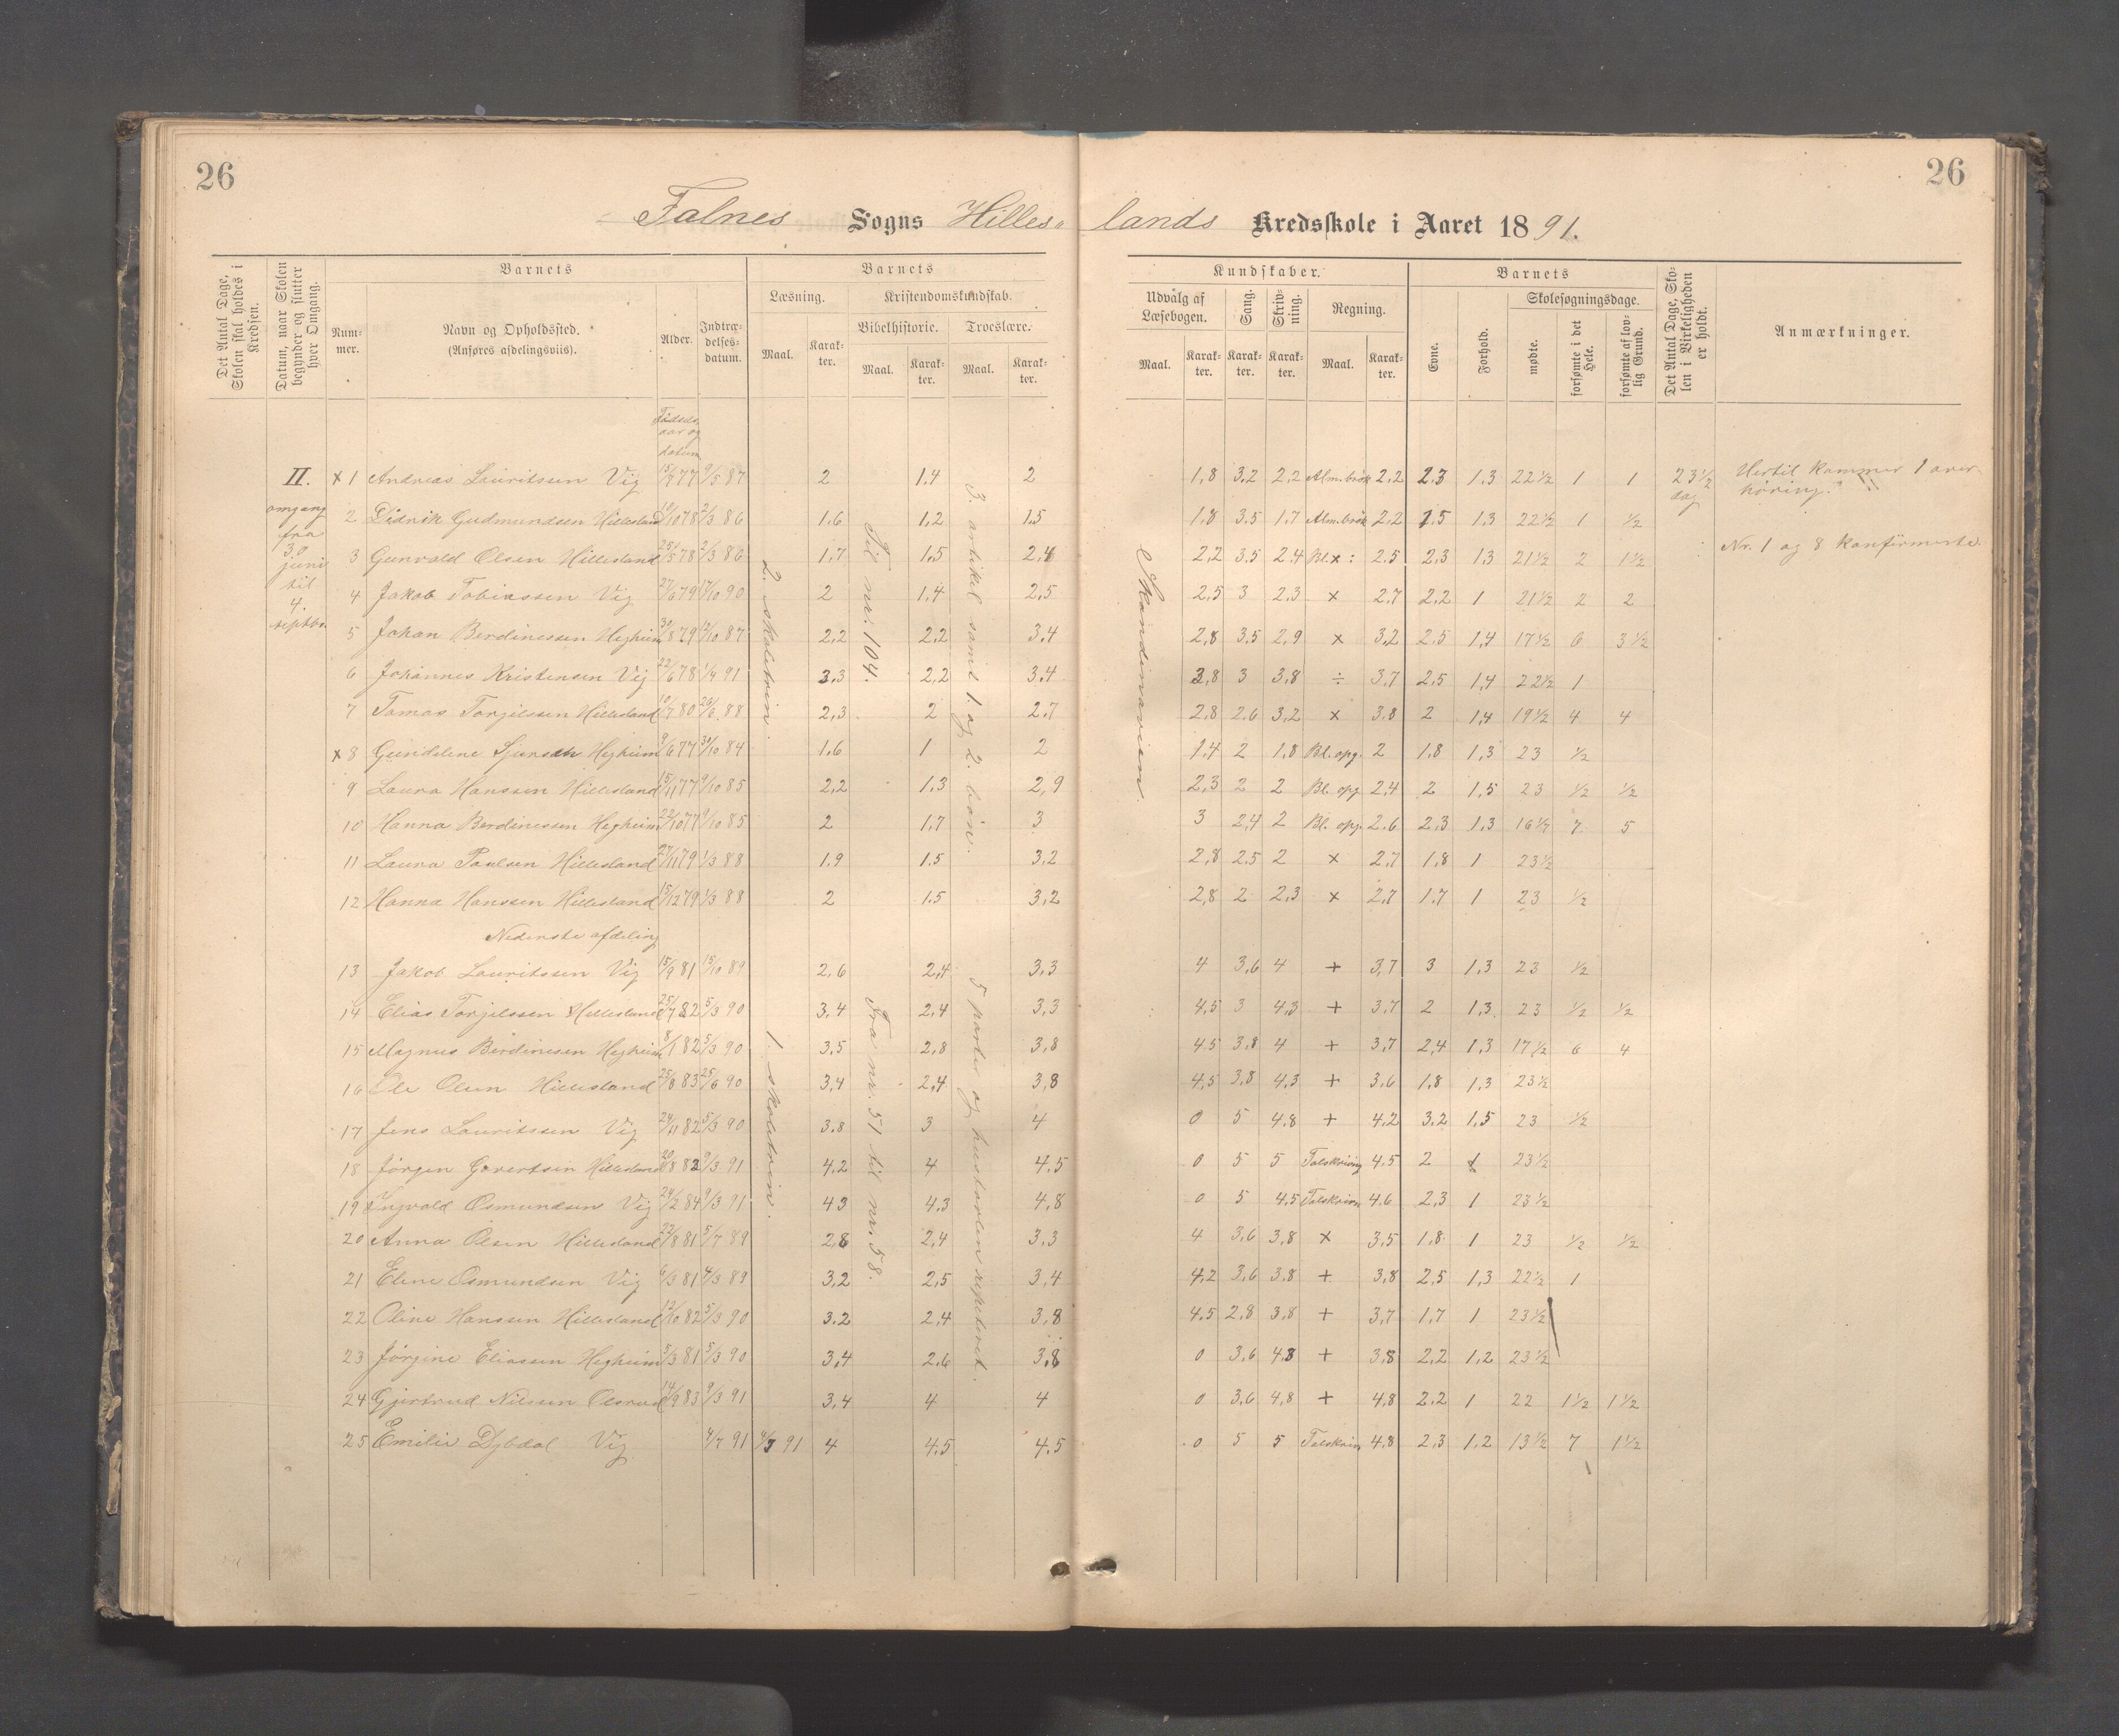 26
26
Falnes Sogns Hilleslands Kredsskole i Aaret 1891.
Det Antal Dage, Skolen skal holdes i Kredsen.
Datum, naar Skolen begynder og slutter hver Omgang.
Barnets
Nummer.
Navn og Opholdssted. (Anføres afdelingsviis).
Alder.
Indtrædelsesdatum.
Barnets
Læsning.
Maal.
Karakter.
Kristendomskundskab.
Bibelhistorie.
Maal.
Karakter.
Troeslære.
Maal.
Karakter.
Kundskaber.
Udvalg af Læsebogen.
Maal.
Karakter.
Sang.
Karakter.
Skrivning.
Karakter.
Regning.
Maal.
Karakter.
Barnets
Evne.
Forhold.
Skolesøgningsdage.
mødte.
forsømte i det Hele.
forsømte af lovlig Grund.
Det Antal Dage, Skolen i Virkeligheden er holdt.
Anmærkninger.
Fødselsaar og datum
II. omgang fra 30 juni til 4. septbr.
x 1 Andreas Lauritssen Vig 15/7 77 9/5 87 2 1.4 2 1,8 3.2 2.2 Alm.brøk 2,2 2.3 1.3 22½ 1 1 23½ dag Hertil kommer 1 overhøring.
2 Didrik Gudmundsen Hillesland 10/10 78 2/3 86 1.6 1.2 1.5 1.8 3.5 1.7 Alm.brøk 2,2 1.5 1.3 22½ 1 ½
3 Gunvald Olsen Hillesland 25/5 78 2/3 86 1.7 1.5 2,4 2,2 3.5 2.4 Bl.x: 2.5 2,3 1.3 21½ 2 1½ Nr. 1 og 8 konfirmerte.
4 Jakob Tobiassen Vig 27/6 79 17/10 90 2 1.4 2.5 2.5 3 2.3 x 2.7 2.2 1 21½ 2 2
5 Johan Berdinessen Hegheim 30/8 79 12/10 87 2,2 2.2 3.4 2,8 3.5 2,9 x 3,2 2.5 1,4 17½ 6 3½
6 Johannes Kristensen Vig 22/6 78 1/4 91 3.3 2,2 3.4 3,8 3 3,8 ÷ 3.7 2,5 1,4 22½ 1
7 Tomas Torjilssen Hillesland 10/7 80 26/6 88 2,3 2 2.7 2.8 2.6 3,2 x 3.8 2 1,4 19½ 4 4
x 8 Guridlene Sjursen Hegheim 9/6 77 30/10 84 1.6 1 2 1.4 2 1,8 Bl. opg. 2 1,8 1,3 23 ½
9 Laura Hanssen Hillesland 15/11 77 9/10 85 2,2 1.3 2,9 2,3 2 2 Bl. opg 2,4 2 1,5 23 ½ ½
10 Hanna Berdinessen Hegheim 22/10 77 9/10 85 2 1.7 3 3 2,4 2 Bl. opg. 2.6 2,3 1.3 16½ 7 5
11 Laura Paulsen Hillesland 27/11 79 1/3 88 1.9 1.5 3.2 2,8 2.5 2 x 2,7 1,8 1 23½
12 Hanna Hanssen Hillesland 15/12 79 1/3 88 2 1.5 3,2 2,8 2 2,3 x 2,7 1.7 1 23 ½
2. skoletrin.
Til nr. 104.
3. artikel samt 1. og 2. bøn.
Skandinavien.
Nederste afdeling
13 Jakob Lauritssen Vig 15/9 81 15/10 89 2,6 2,4 3,3 4 3,6 4 + 3,7 3 1,3 23 ½
14 Elias Torjilssen Hillesland 25/7 82 5/3 90 3,4 2,4 3,3 4,5 3 4,3 + 3.7 2 1.3 23 ½ ½
15 Magnus Berdinesen Hegheim 8/1 82 5/3 90 3.5 2,8 3,8 4.5 3,8 4 + 3,7 2,4 1.3 17½ 6 4
16 Ole Olsen Hillesland 25/8 83 25/6 90 3,4 2,4 3,8 4,5 3,8 4,3 + 3.6 1.8 1.3 23½
17 Jens Lauritssen Vig 24/11 82 5/3 90 3.8 3 4 0 5 4.8 + 4.2 3.2 1.5 23 ½
18 Jørgen Govertsen Hillesland 20/8 82 9/3 91 4.2 4 4.5 0 5 5 Talskrivng 4.5 2 1 23½
19 Ingvald Osmundsen Vig 24/2 84 9/3 91 4.3 4.3 4,8 0 5 4.5 Talskrivn 4.6 2.3 1 23½
20 Anna Olsen Hillesland 22/8 81 5/7 89 2,8 2,4 3.3 4 3,6 3,8 x 3,5 1,8 1 23 ½ ½
21 Eline Osmundsen Vig 6/3 81 4/3 89 3.2 2,5 3,4 4.2 3,6 3.8 + 3,8 2,5 1,3 22½ 1
22 Oline Hanssen Hillesland 12/10 82 5/3 90 3.2 2,4 3,8 4.5 2,8 3,8 + 3,7 1,7 1 23½
23 Jørgine Eliassen Hegheim 3/3 81 5/3 90 3,4 2.6 3,8 0 3,6 4.8 + 3,8 2,2 1,2 23½
24 Gjertrud Nilsen 14/9 83 9/3 91 3,4 4 4 0 3,6 4,8 + 4,8 2.2 1 22 1½ 1½
25 Emilie Dybdal Vig 4/7 91 4/7 91 4 4.5 4.5 0 5 5 Talskrivn 4,8 2.3 1.2 13½ 7 1½
1. skoletrin.
Fra nr. 51 til nr. 58.
5 parter og hustavlen repiteret.